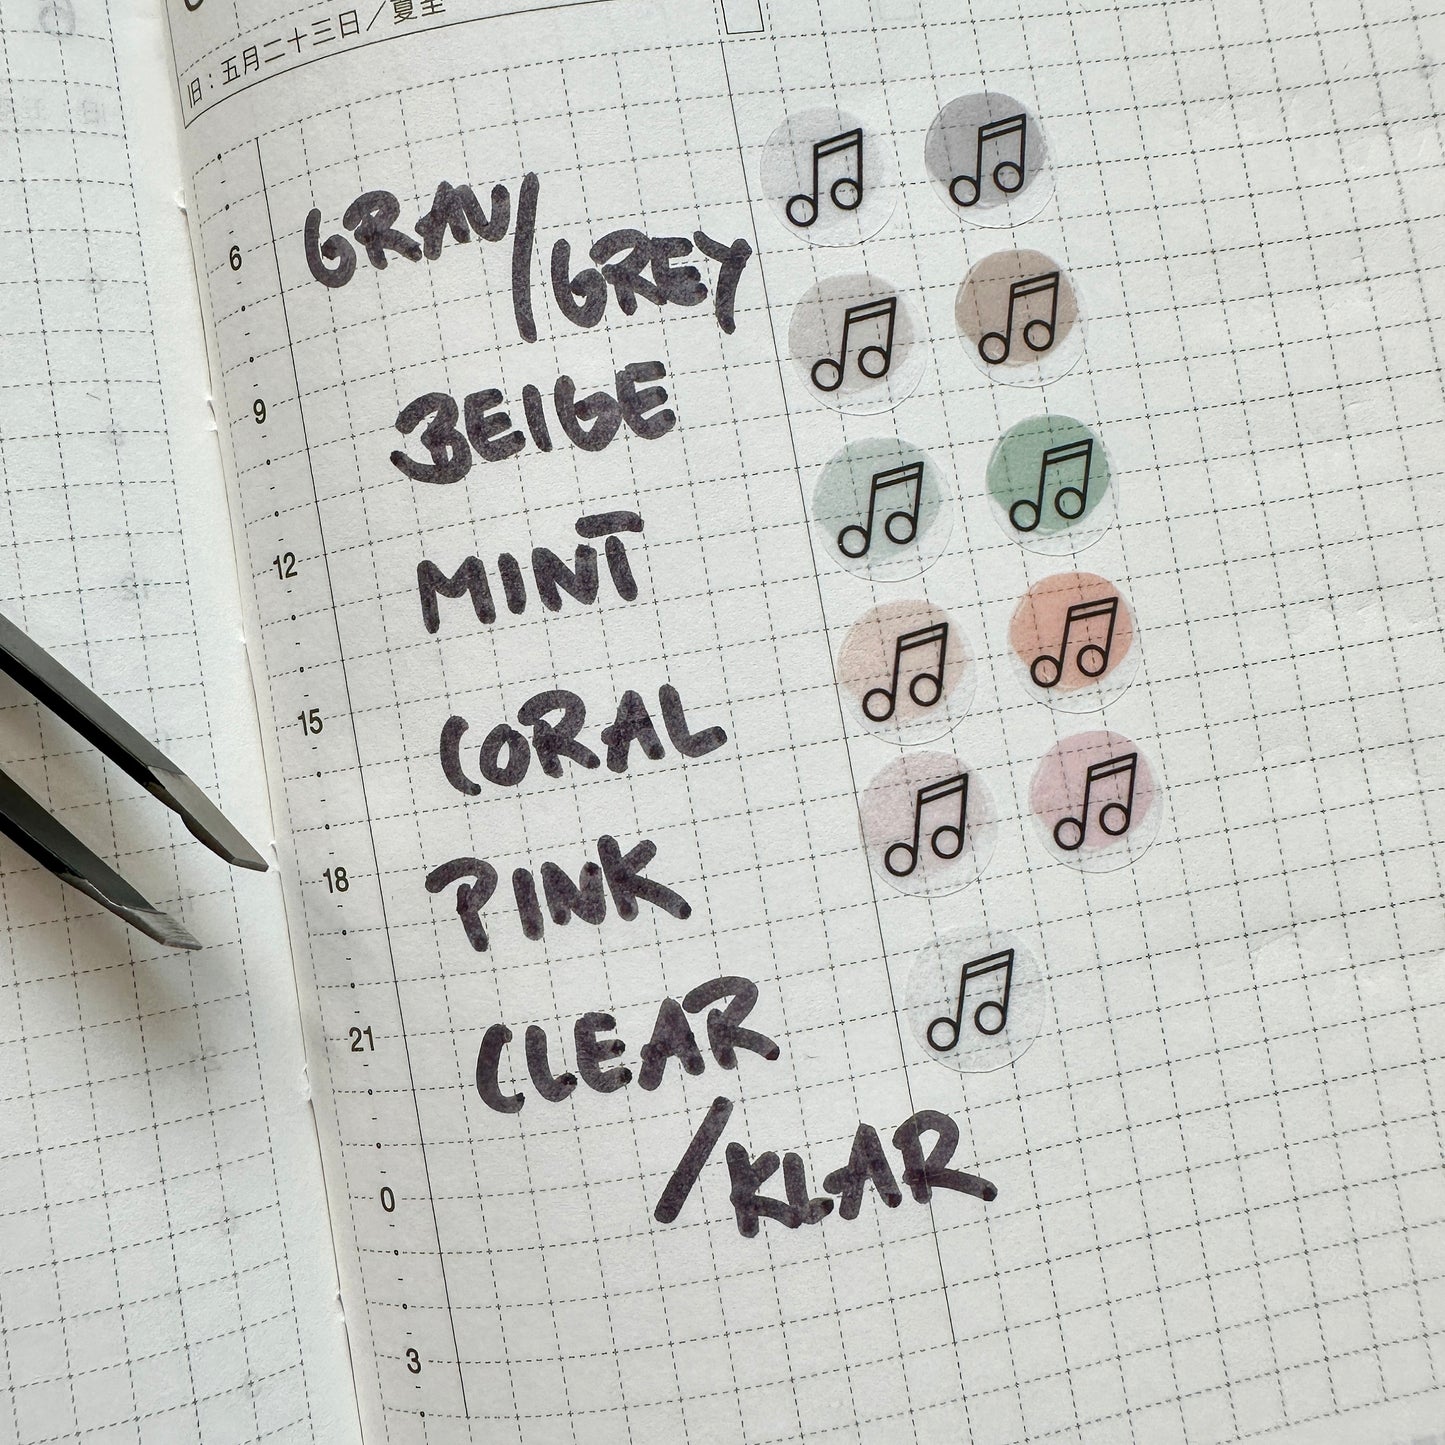 旧：五月二十三日／夏至
6
GRAU/
GREY
9
BEIGE
12
MINT
15
CORAL
18
PINK
21
CLEAR
/KLAR
0
3